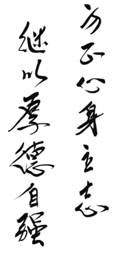 方正心身立志
继以厚德自强